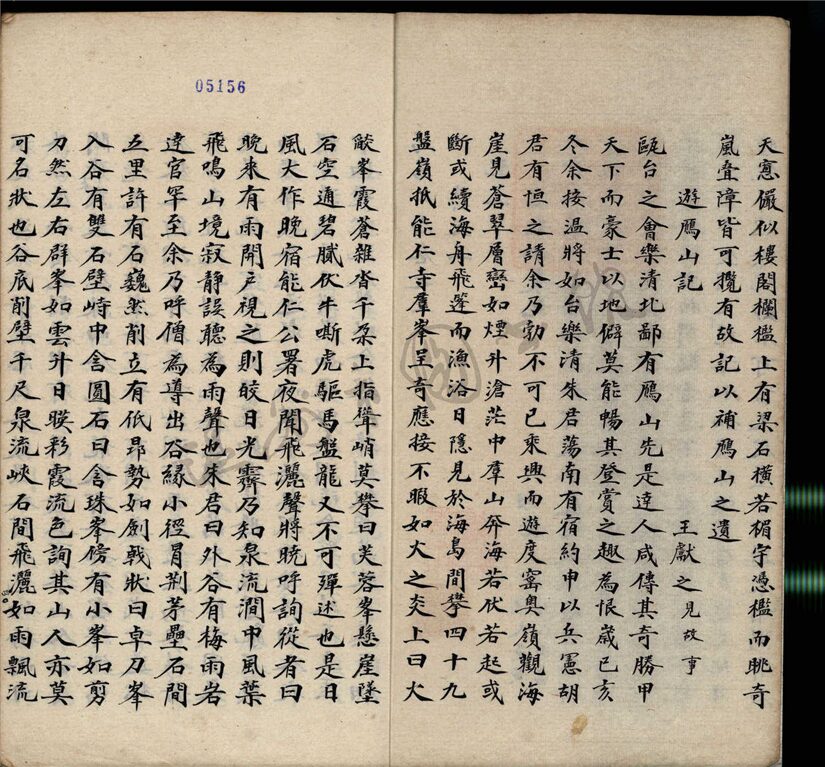 05156
天窓儼似樓閣欄檻上有梁石橫若楣字憑檻而眺奇
嵐叠障皆可攬有故記以補鴈山之遺
遊鴈山記
王獻之見故事
甌台之會樂清北鄙有鴈山先是達人咸傳其奇勝甲
天下而豪士以地僻莫能暢其登賞之趣為恨歲己亥
冬余按温將如台樂清朱君蕩南有宿約申以兵憲胡
君有恒之請余乃勃不可已乘興而遊度窑奥嶺觀海
崖見蒼翠層巒如煙升滄茫中羣山奔海若伏若起或
斷或續海舟飛邌而漁浴日隱見於海島間攀四十九
盤嶺抵能仁寺羣峯呈奇應接不暇如火之炎上曰火
𦦨峯霞蒼雜沓千朶上指聳峭莫攀曰芙蓉峯懸崖墜
石空通碧膩伏牛嘶虎驅馬盤龍又不可殫述也是日
風大作晚宿能仁公署夜聞飛灑聲將曉呼詢從者曰
晚来有雨開戸視之則皎日光霽乃知泉流澗中風葉
飛鳴山境寂静誤聽為雨聲也朱君曰外谷有梅雨岩
達官罕至余乃呼僧為導出谷緣小徑冐荆茅壘石間
五里許有石巍然削立有低昂勢如劍戟狀曰卓刀峯
入谷有雙石壁峙中含圓石曰含珠峯傍有小峯如剪
刀然左右群峯如雲升日暎彩霞流色詢其山人亦莫
可名狀也谷底削壁千尺泉流峽石間飛灑如雨飄流